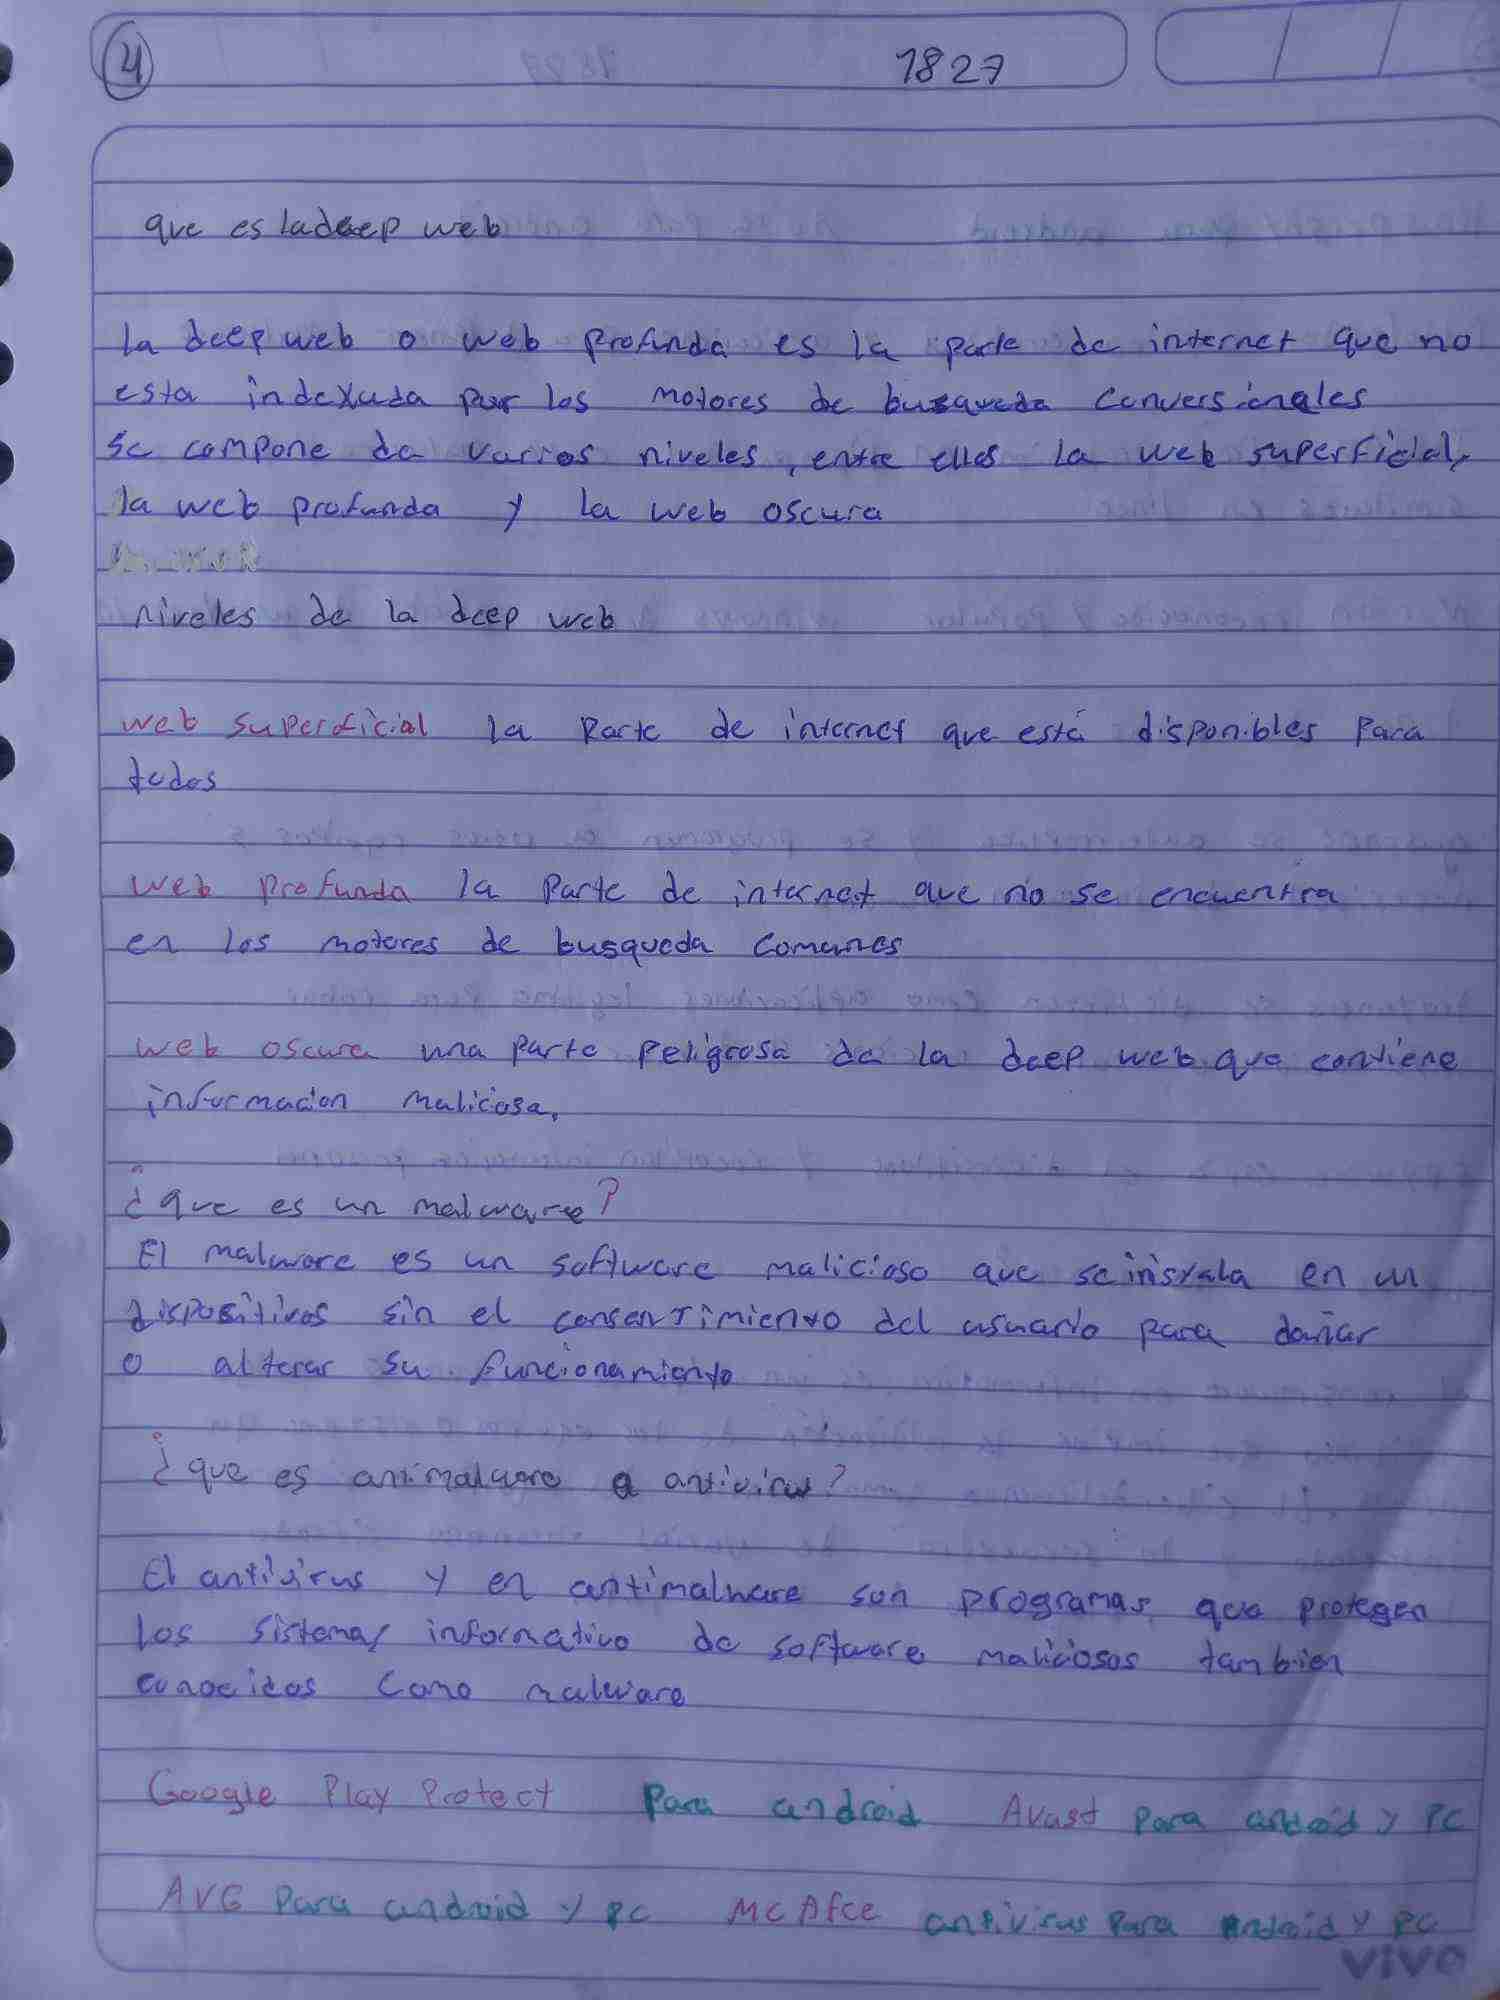 4
1827
que es la deep web
la deep web o web profunda es la parte de internet que no
esta indexada por los motores de busqueda conversionales
se compone de varios niveles, entre ellos la web superficial,
la web profunda y la web oscura
niveles de la deep web
web superficial la parte de internet que está disponibles para
todos
web profunda la parte de internet que no se encuentra
en los motores de busqueda comunes
web oscura una parte peligrosa de la deep web que contiene
informacion maliciosa.
¿que es un malware?
El malware es un software malicioso que se instala en un
dispositivos sin el consentimiento del usuario para dañar
o alterar su funcionamiento
¿que es antimalware o antivirus?
El antivirus y en antimalware son programas que protegen
los sistemas informativo de software maliciosos tambien
conocidos como malware
Google Play Protect para android Avast para android y PC
AVG para android y PC McAfee antivirus para Android y PC
vivo